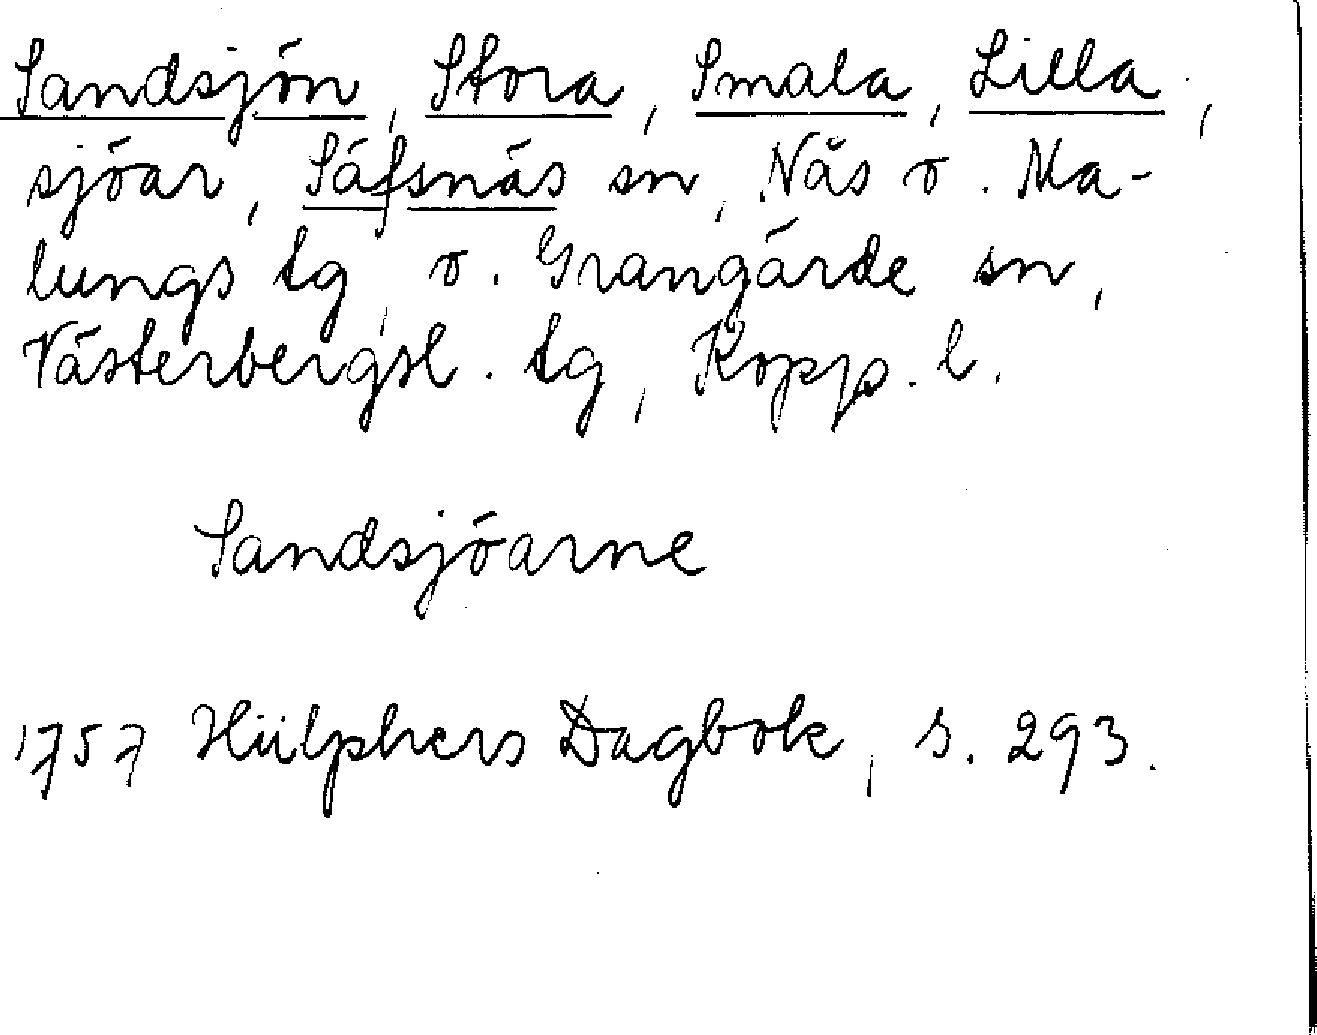 Sandsjön, Stora, Smala, Lilla,
sjöar, Säfsnäs sn, Näs o. Ma-
lungs tg, o. Grangärde sn,
Västerbergsl. tg, Kopp. l.
Sandsjöarne
1757 Hülphers Dagbok, s. 293.